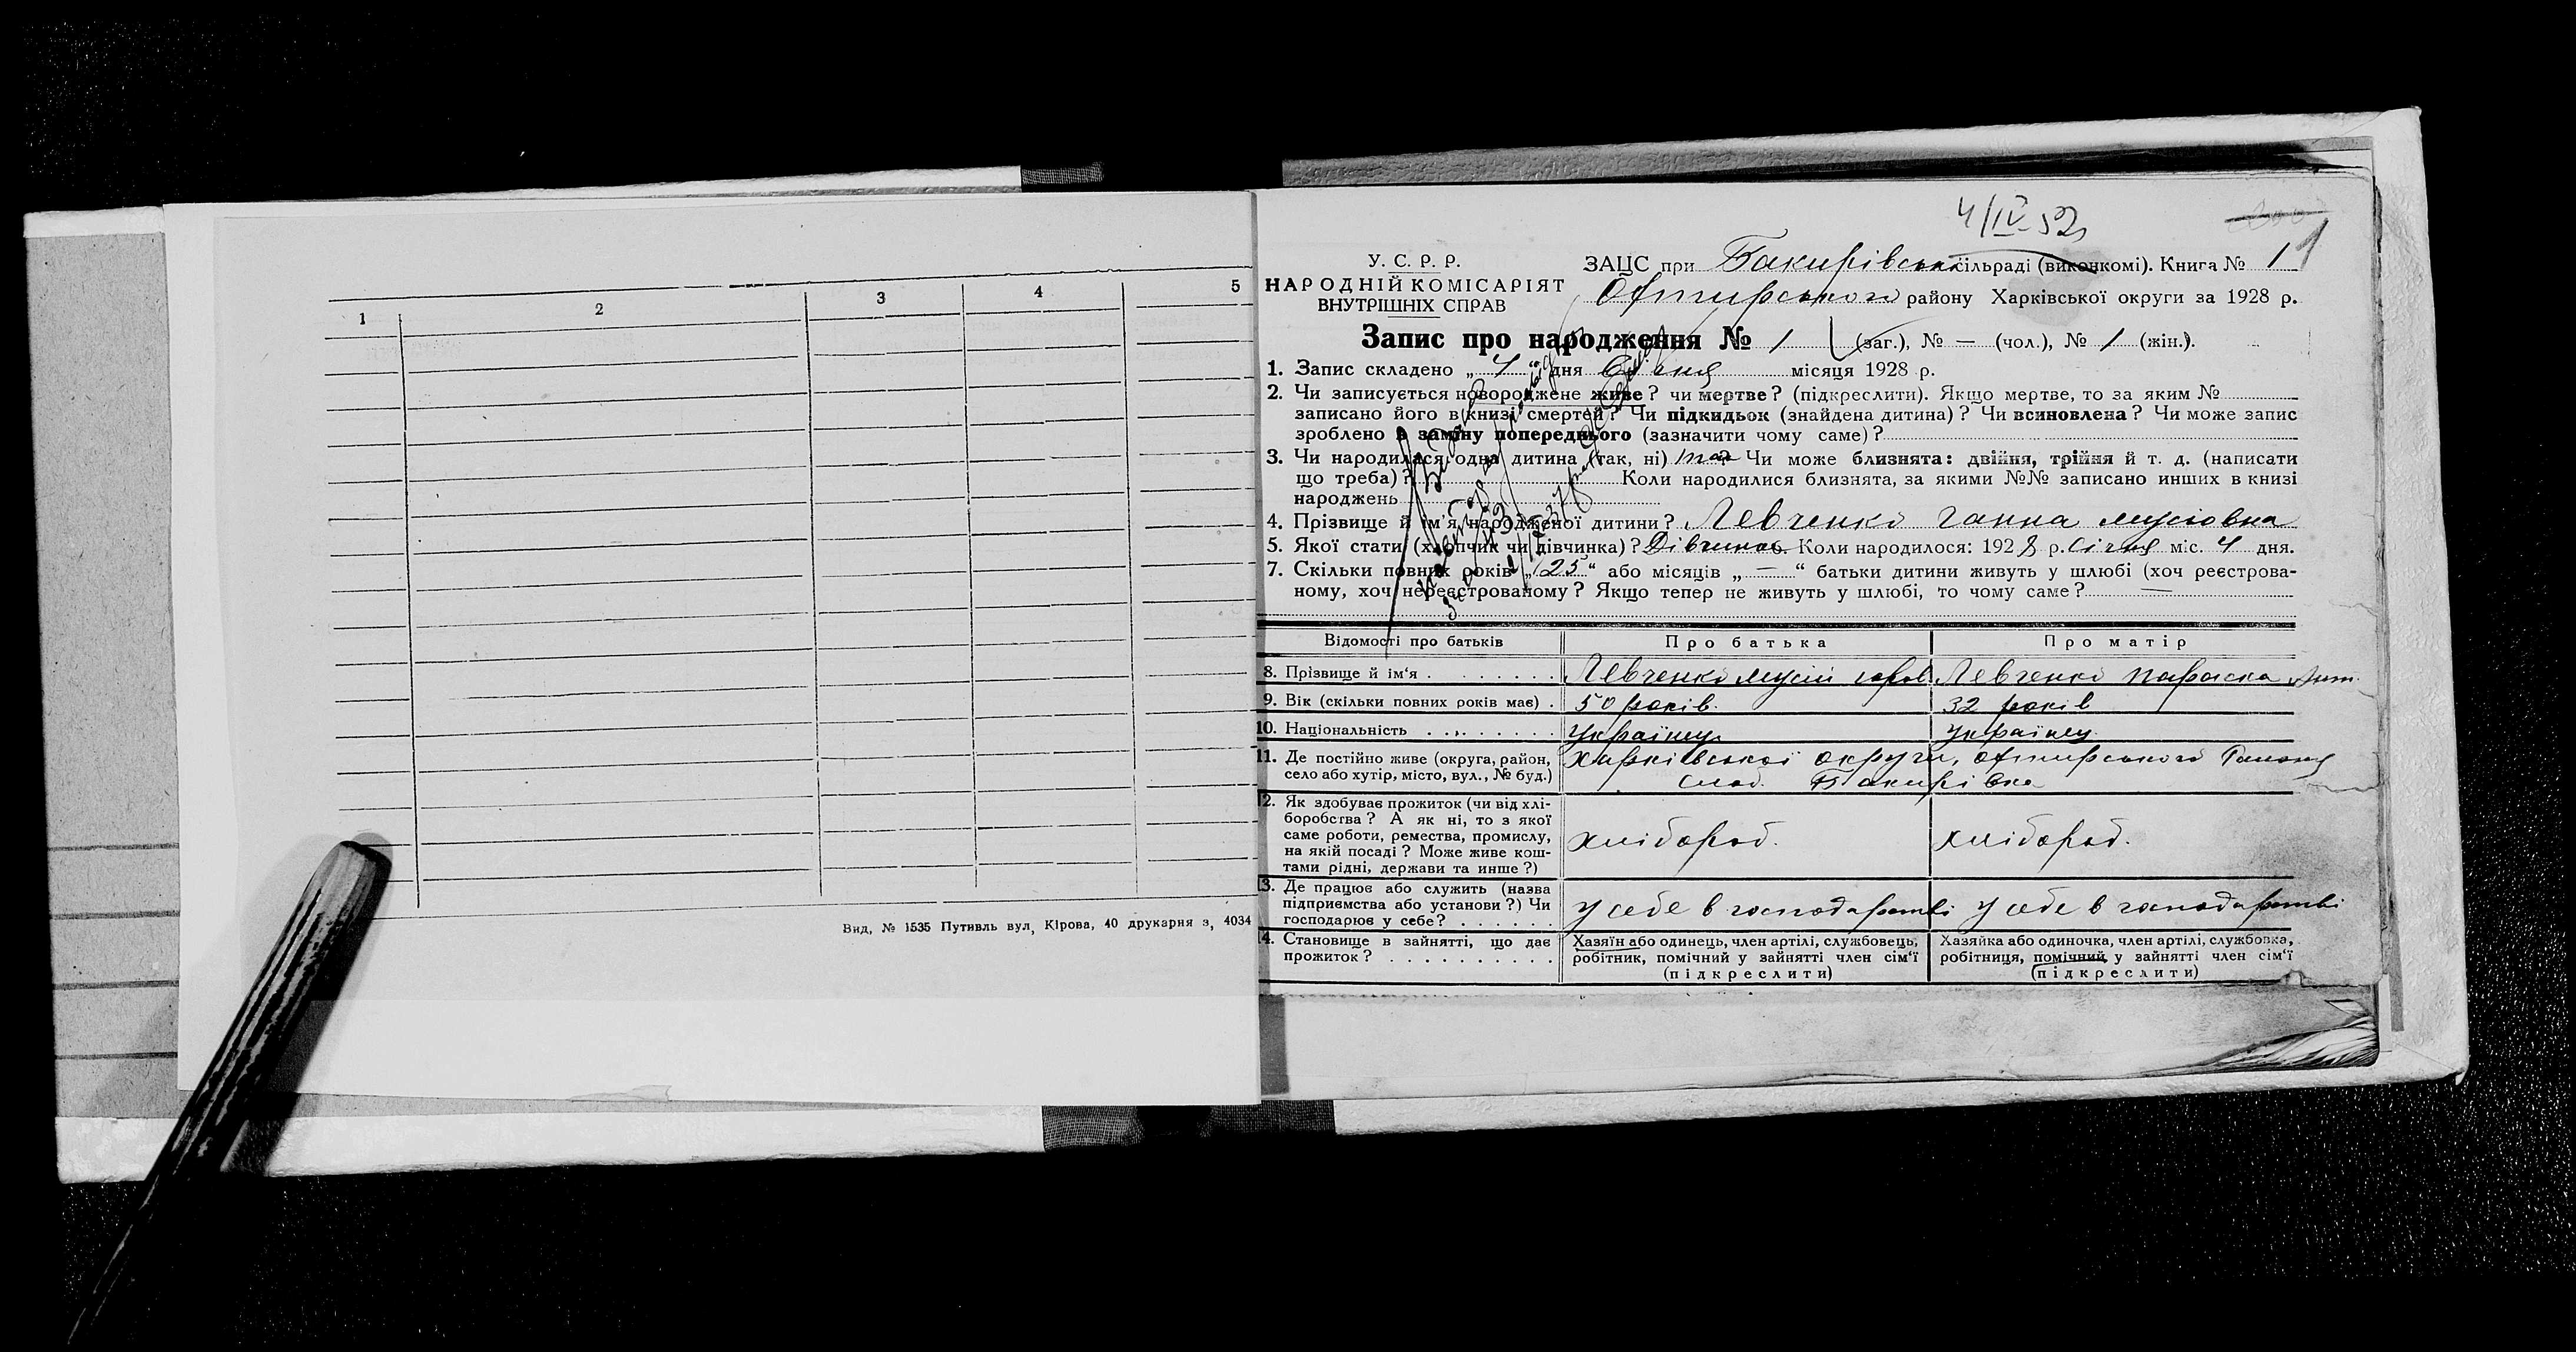 1 2 3 4 5
Вид, № 1535 Путивль вул, Кірова, 40 друкарня з, 4034
4/IV-52
У. С. Р. Р.
НАРОДНІЙ КОМІСАРІЯТ
ВНУТРІШНІХ СПРАВ
ЗАЦС при Бакирівськ сільраді (виконкомі). Книга № 1
Охтирського району Харківської округи за 1928 р.
Запис про народження № 1 (заг.), № — (чол.), № 1 (жін.).
1. Запис складено „ 4 “ дня Січня місяця 1928 р.
2. Чи записується новороджене живе? чи мертве? (підкреслити). Якщо мертве, то за яким №
записано його в книзі смертей? Чи підкидьок (знайдена дитина)? Чи всиновлена? Чи може запис
зроблено в заміну попереднього (зазначити чому саме)?
3. Чи народилася одна дитина (так, ні) так Чи може близнята: двійня, трійня й т. д. (написати
що треба)? Коли народилися близнята, за якими №№ записано инших в книзі
народжень
4. Прізвище й ім'я народженої дитини? Левченко Ганна Мусіовна
5. Якої стати (хлопчик чи дівчинка)? Дівчина 6. Коли народилося: 1928 р. Січня міс. 4 дня.
7. Скільки повних років „ 25 “ або місяців „ — “ батьки дитини живуть у шлюбі (хоч реєстрова-
ному, хоч нереєстрованому? Якщо тепер не живуть у шлюбі, то чому саме? —
Відомості про батьків Про батька Про матір
8. Прізвище й ім'я Левченко Мусій Левченко Параска
9. Вік (скільки повних років має) 50 років. 32 років
10. Національність Українець Українец
11. Де постійно живе (округа, район, Харківської округи, Охтирського Району
село або хутір, місто, вул., № буд.) слоб. Бакирівка
12. Як здобуває прожиток (чи від хлі-
боробства? А як ні, то з якої
саме роботи, ремества, промислу, хлібороб. хлібороб.
на якій посаді? Може живе кош-
тами рідні, держави та инше?)
13. Де працює або служить (назва
підприємства або установи?) Чи у себе в господарстві у себе в господарстві
господарює у себе?
14. Становище в зайнятті, що дає Хазяїн або одинець, член артілі, службовець, Хазяйка або одиночка, член артілі, службовка,
прожиток? робітник, помічний у зайнятті член сім'ї робітниця, помічний у зайнятті член сім'ї
(підкреслити) (підкреслити)